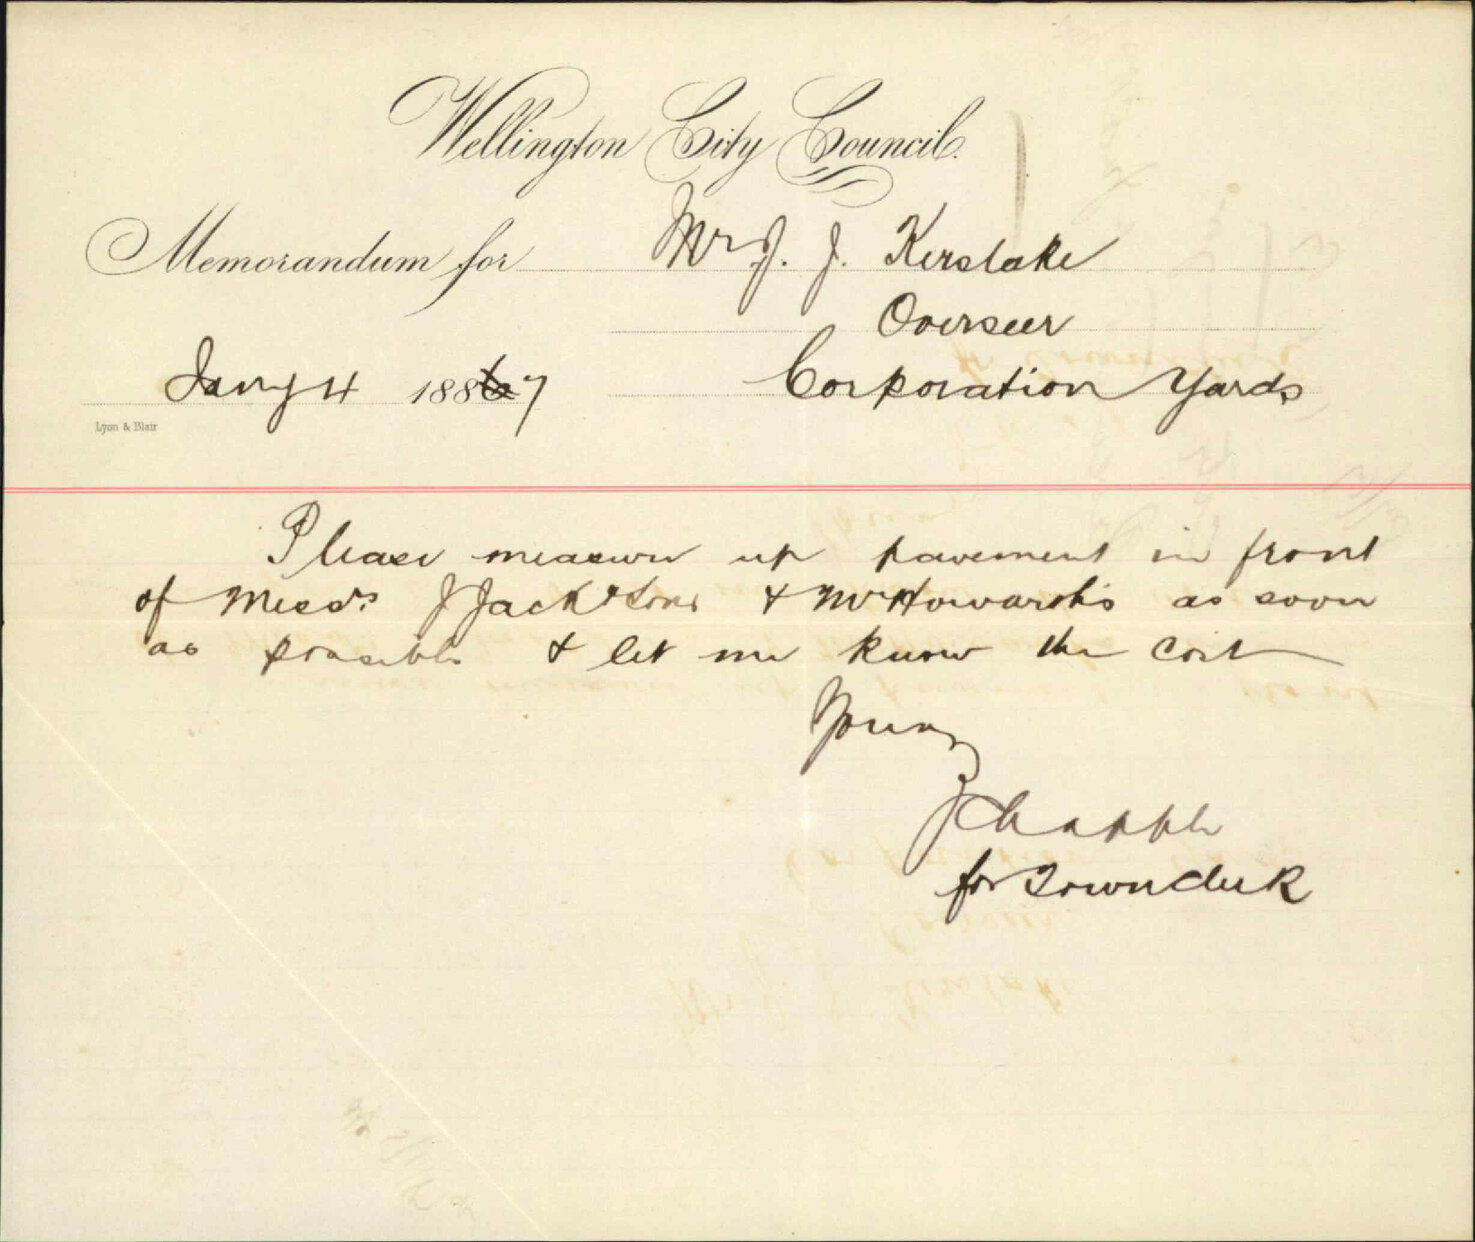 Wellington City Council.
Memorandum for Mr J. J. Kerslake
Overseer
Jany 4 1887 Corporation Yards
Lyon & Blair
Please measure up pavement in front
of Messrs J Jack & Sons & Mr Howarth's as soon
as possible & let me know the cost
Yours
J Chapple
for Town Clerk